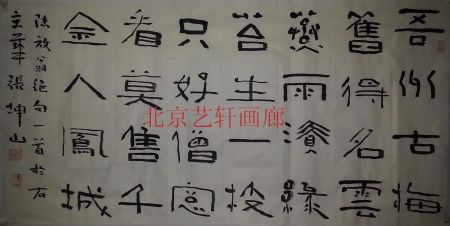 吾州古梅
舊得名雲
蒸雨漬綠
苔生一枝
只好僧窓
看莫售千
金入鳳城
陸放翁絕句一首於右
京華張坤山
北京艺轩画廊